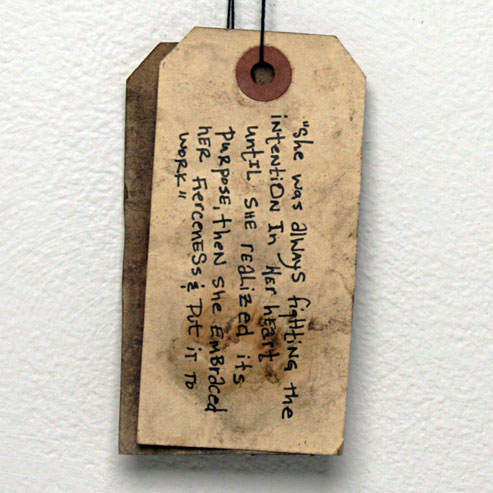 "She was always fighting the
intention In Her heart
until she realized its
purpose, then she Embraced
her fierceness & Put it to
work"